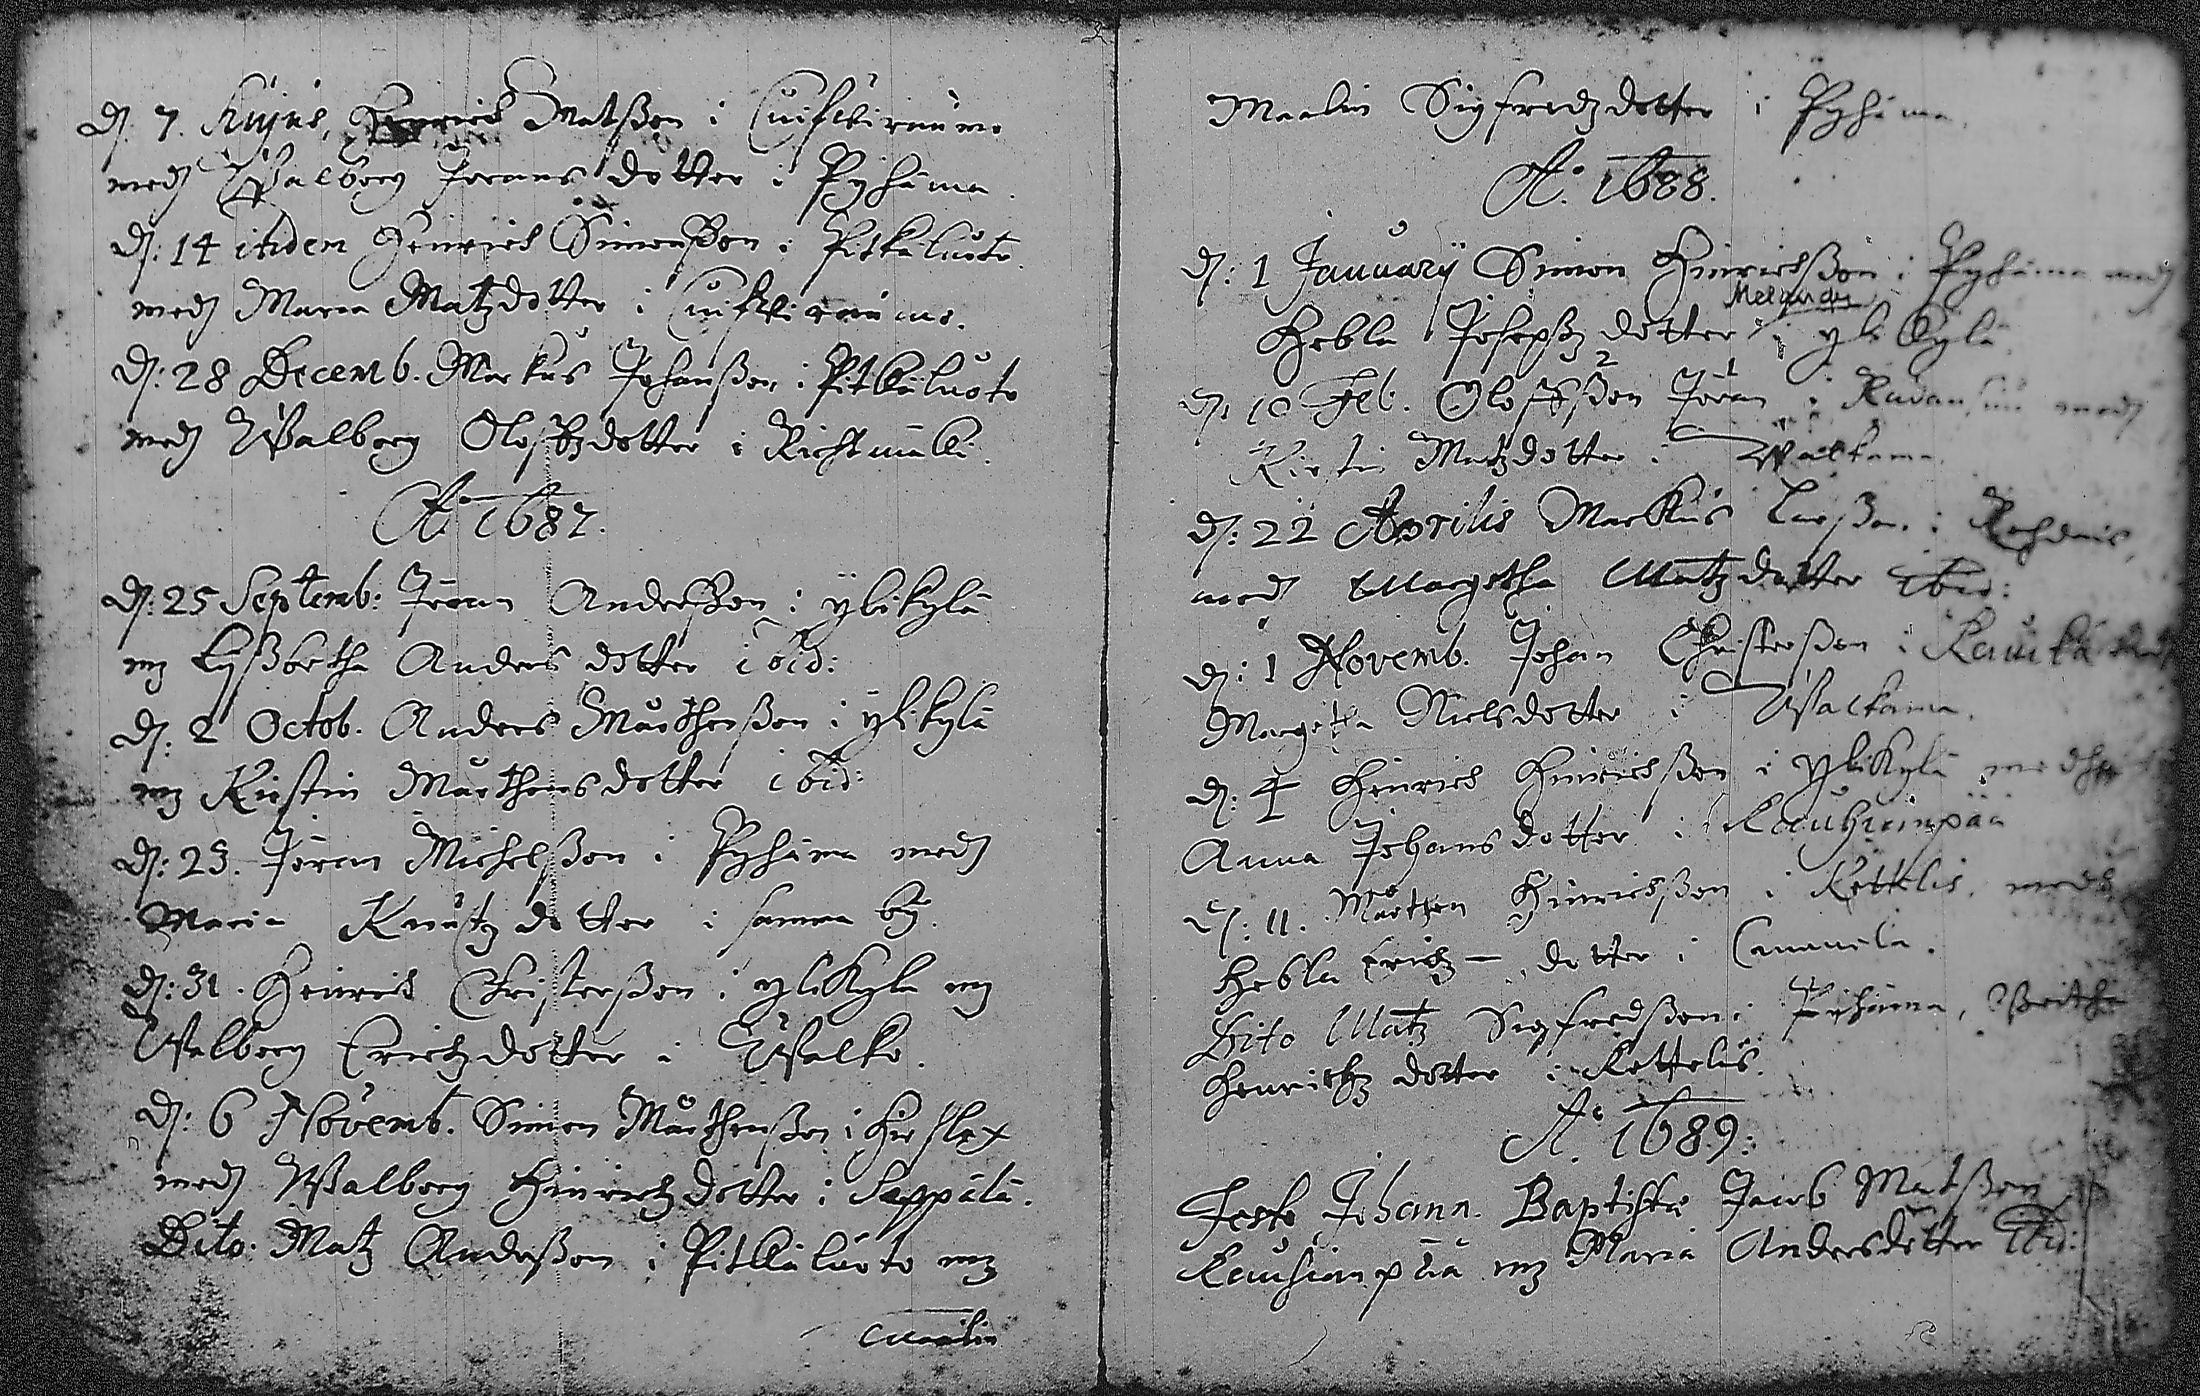 D: 7. Hujus, Henrich Matßon i Cuifwirauma
medh Walborg Jörans dotter i Pyhäma.
D: 14 itidem Henrich Simonßon i Pitkäluoto.
medh Maria Matzdotter i Cuifwirauma.
D: 28 Decemb. Markus Johanßon i Pitkäluoto
medh Walborg Oloffzdotter i Richtniäki.
Ao 1687.
D: 25 Septemb: Jöran Anderßon i ylikylä
mz Lyßbetha Anders dotter ibid:
D: 2 Octob. Anders Mårthenßon i ylikylä
mz Kirstin Mårthensdotter ibid:
D: 23. Jöran Michelßon i Pyhäma medh
Maria Knutz dotter i samma by.
D: 31. Henrich Christerßon i ylikylä mz
Walborg Erichzdotter i Walko.
D: 6 Novemb. Simon Mårthenßon i Hirslax
medh Walborg Hinrichzdotter i Seppälä.
Dito: Matz Anderßon i Pitkäluoto mz
Maalin
Maalin Sigfredzdotter i Pyhäma.
Ao 1688.
D: 1 Januarij Simon Hinrichßon i Pyhäma medh
Hebla Josephz dotter i ylikylä
D: 10 Feb. Oloffßon 2 Jöran 1 i medh
Kirstin Matzdotter i Walkama
D: 22 Aprilis Markus Larßon i Rohdais,
medh Margetha Matzdotter ibid:
D: 1 Novemb. Johan Christerßon i
Margeta Nielsdotter i Walkama.
D: 4 Hinrich Hinrichßon i Ylikylä medh
Anna Johansdotter i Kauhianpää
D: 11. Mårthen Hinrichßon i Kettelis, medh
Hebla Erichz- dotter i Cananela.
Dito Matz Sigfredßon i Pyhäma, Britha
Henrichz dotter i Kettelis.
Ao 1689:
Festo Johann. Baptistæ Jacob Matßon
Kauhianpää mz Maria Andersdotter ibid: